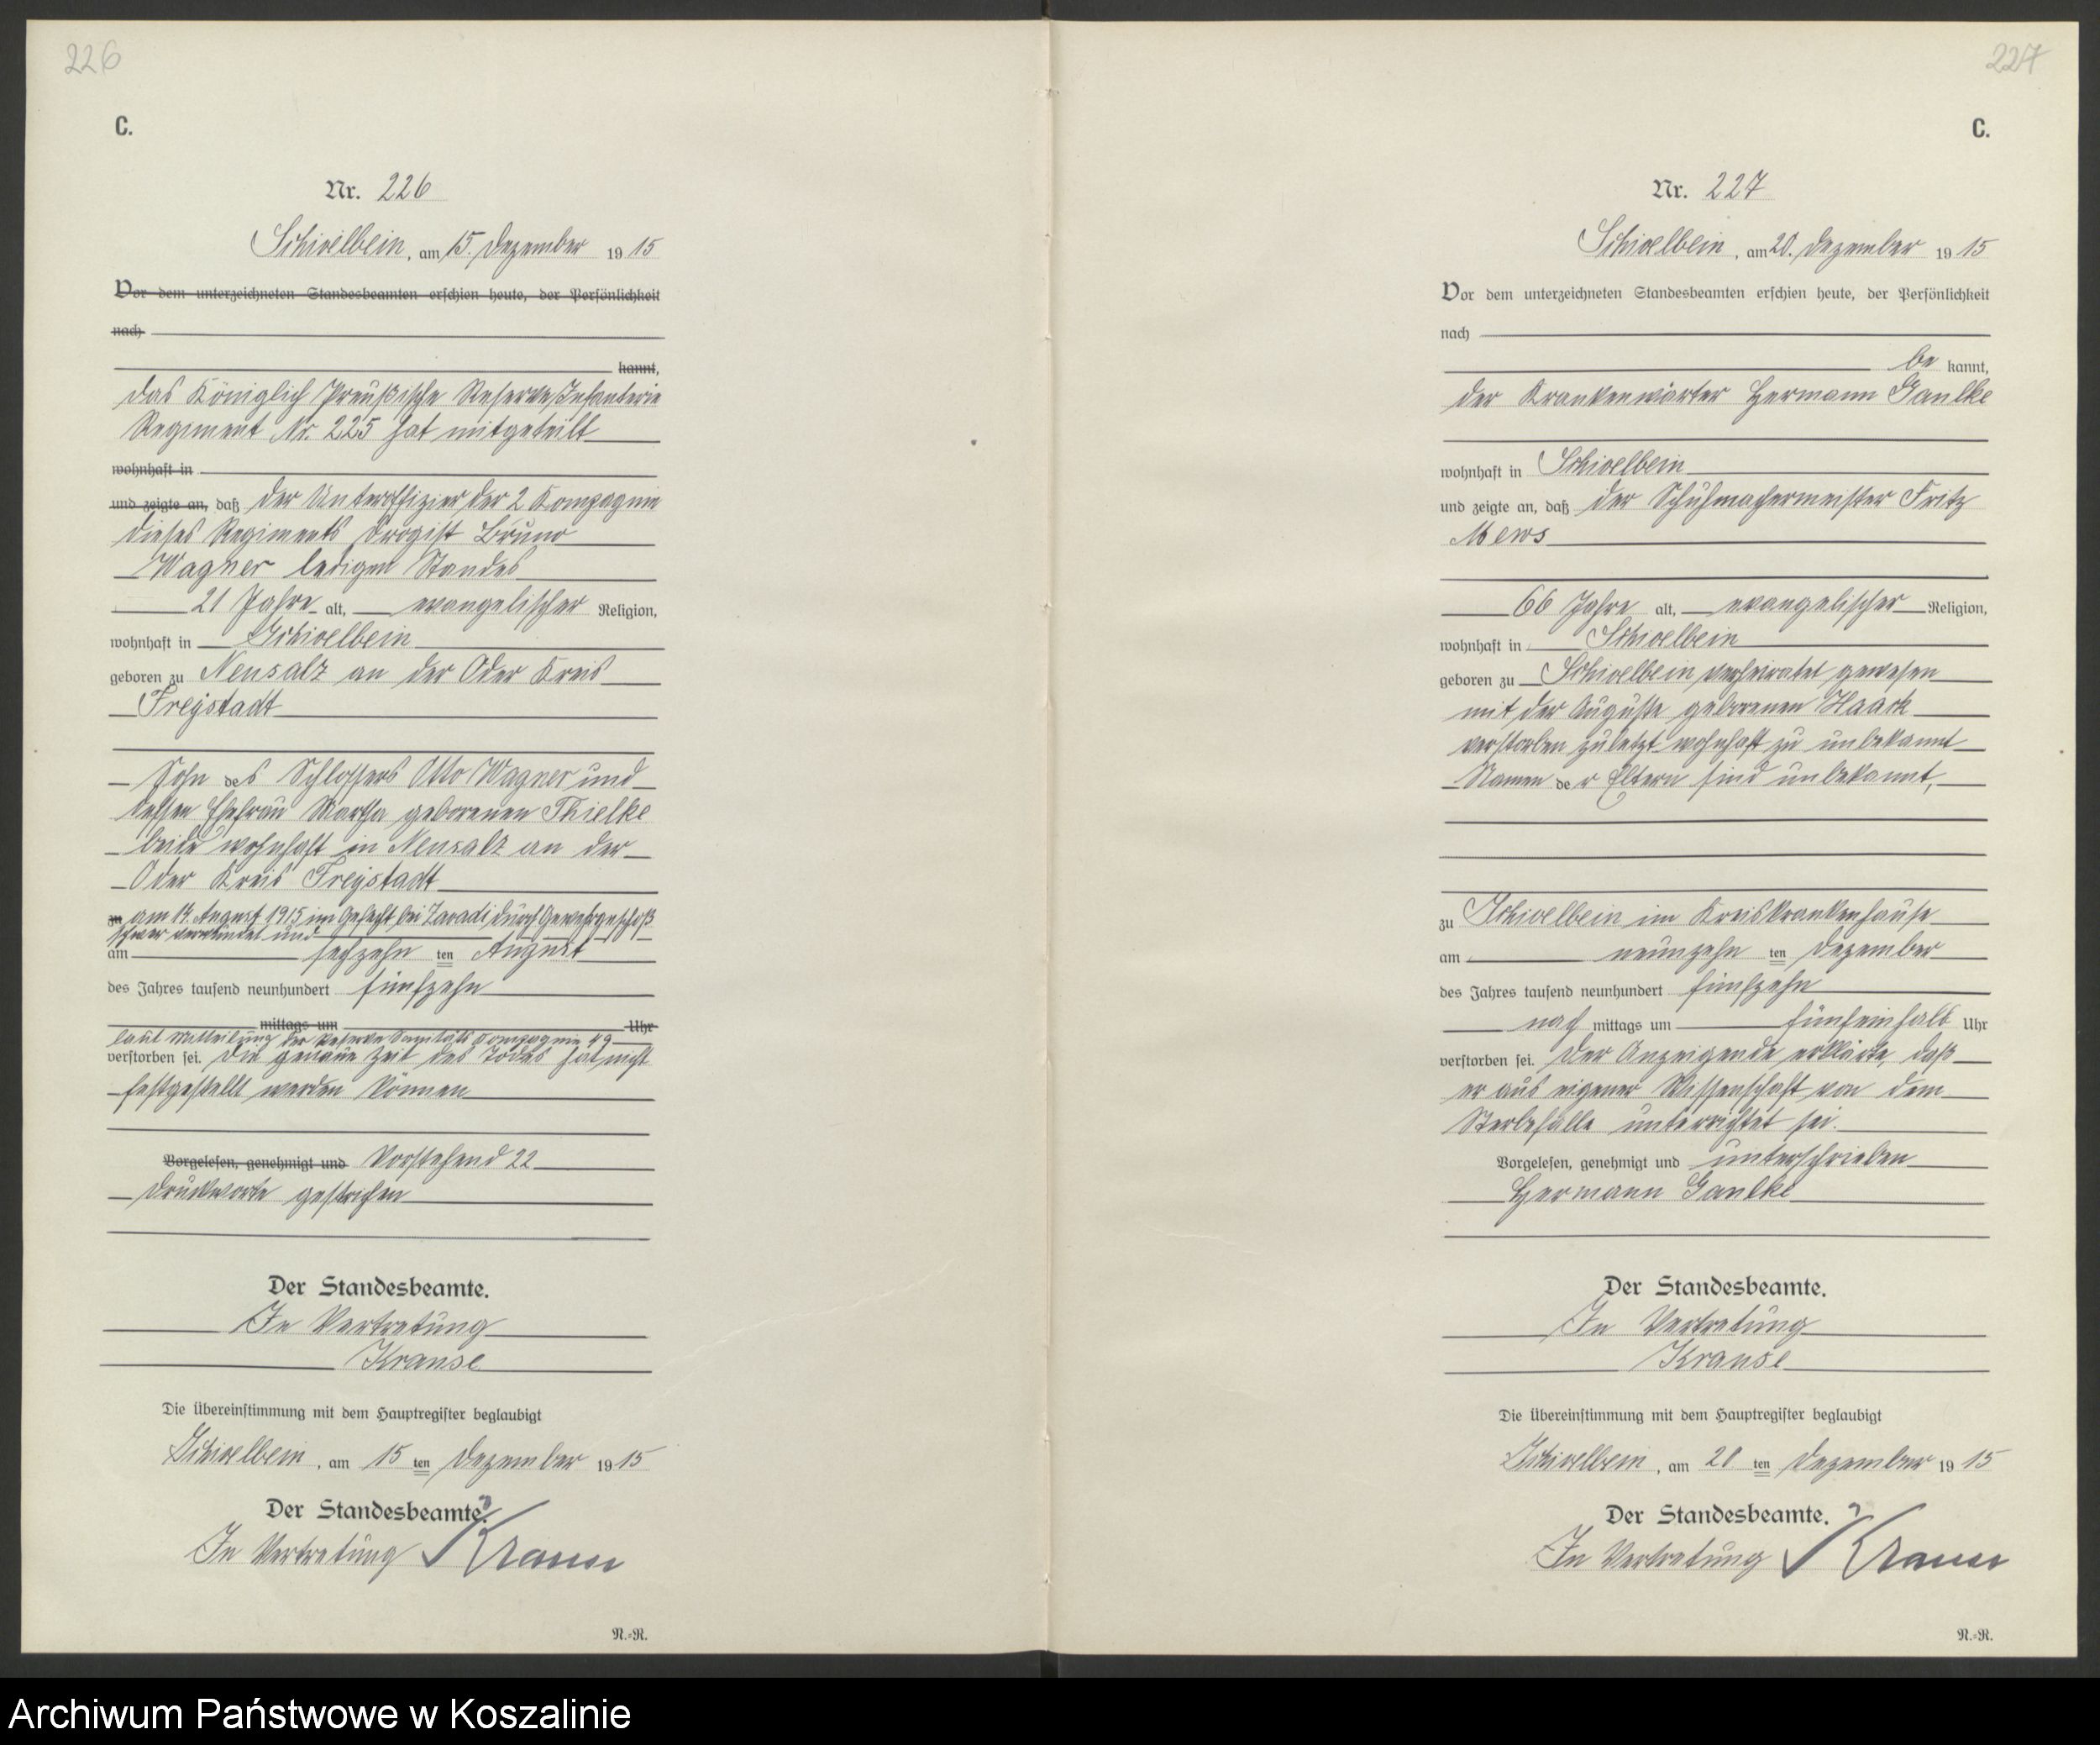 226
C.
Nr. 226
Schivelbein, am 15. Dezember 1915
Vor dem unterzeichneten Standesbeamten erschien heute, der Persönlichkeit
nach
kannt,
das Königlich Preußische Reserve Infanterie
Regiment Nr. 225 hat mitgeteilt
wohnhaft in
und zeigte an, daß der Unteroffizier der 2 Kompagnie
dieses Regiments Drogist Bruno
Wagner ledigen Standes
21 Jahre alt, evangelischer Religion,
wohnhaft in Schivelbein
geboren zu Neusalz an der Oder Kreis
Freystadt
Sohn des Schlossers Otto Wagner und
dessen Ehefrau Martha geborenen Thielke
beide wohnhaft in Neusalz an der
Oder Kreis Freystadt
zu am 14. August 1915 im Gefecht bei durch Gewehrgeschoß
schwer verwundet und
am sechzehn ten August
des Jahres tausend neunhundert fünfzehn
mittags um Uhr
laut Mitteilung der Reserve Sanitäts Compagnie 49
verstorben sei. Die genaue Zeit des Todes hat nicht
festgestellt werden können
Vorgelesen, genehmigt und Vorstehend 22
Druckworte gestrichen
Der Standesbeamte.
In Vertretung
Krause
Die Übereinstimmung mit dem Hauptregister beglaubigt
Schivelbein, am 15 ten Dezember 1915
Der Standesbeamte.
In Vertretung Krause
N.=R.
227
C.
Nr. 227
Schivelbein, am 20. Dezember 1915
Vor dem unterzeichneten Standesbeamten erschien heute, der Persönlichkeit
nach
be kannt,
der Krankenwärter Hermann Gaulke
wohnhaft in Schivelbein
und zeigte an, daß der Schuhmachermeister Fritz
Mews
66 Jahre alt, evangelischer Religion,
wohnhaft in Schivelbein
geboren zu Schivelbein verheiratet gewesen
mit der Auguste geborenen Haack
verstorben zuletzt wohnhaft zu unbekannt
Namen der Eltern sind unbekannt,
zu Schivelbein im Kreiskrankenhause
am neunzehn ten Dezember
des Jahres tausend neunhundert fünfzehn
nach mittags um fünfeinhalb Uhr
verstorben sei. Der Anzeigende erklärte, daß
er aus eigener Wissenschaft von dem
Sterbefalle unterrichtet sei.
Vorgelesen, genehmigt und unterschrieben
Hermann Gaulke
Der Standesbeamte.
In Vertretung
Krause
Die Übereinstimmung mit dem Hauptregister beglaubigt
Schivelbein, am 20 ten Dezember 1915
Der Standesbeamte.
In Vertretung Krause
N.=R.
Archiwum Państwowe w Koszalinie